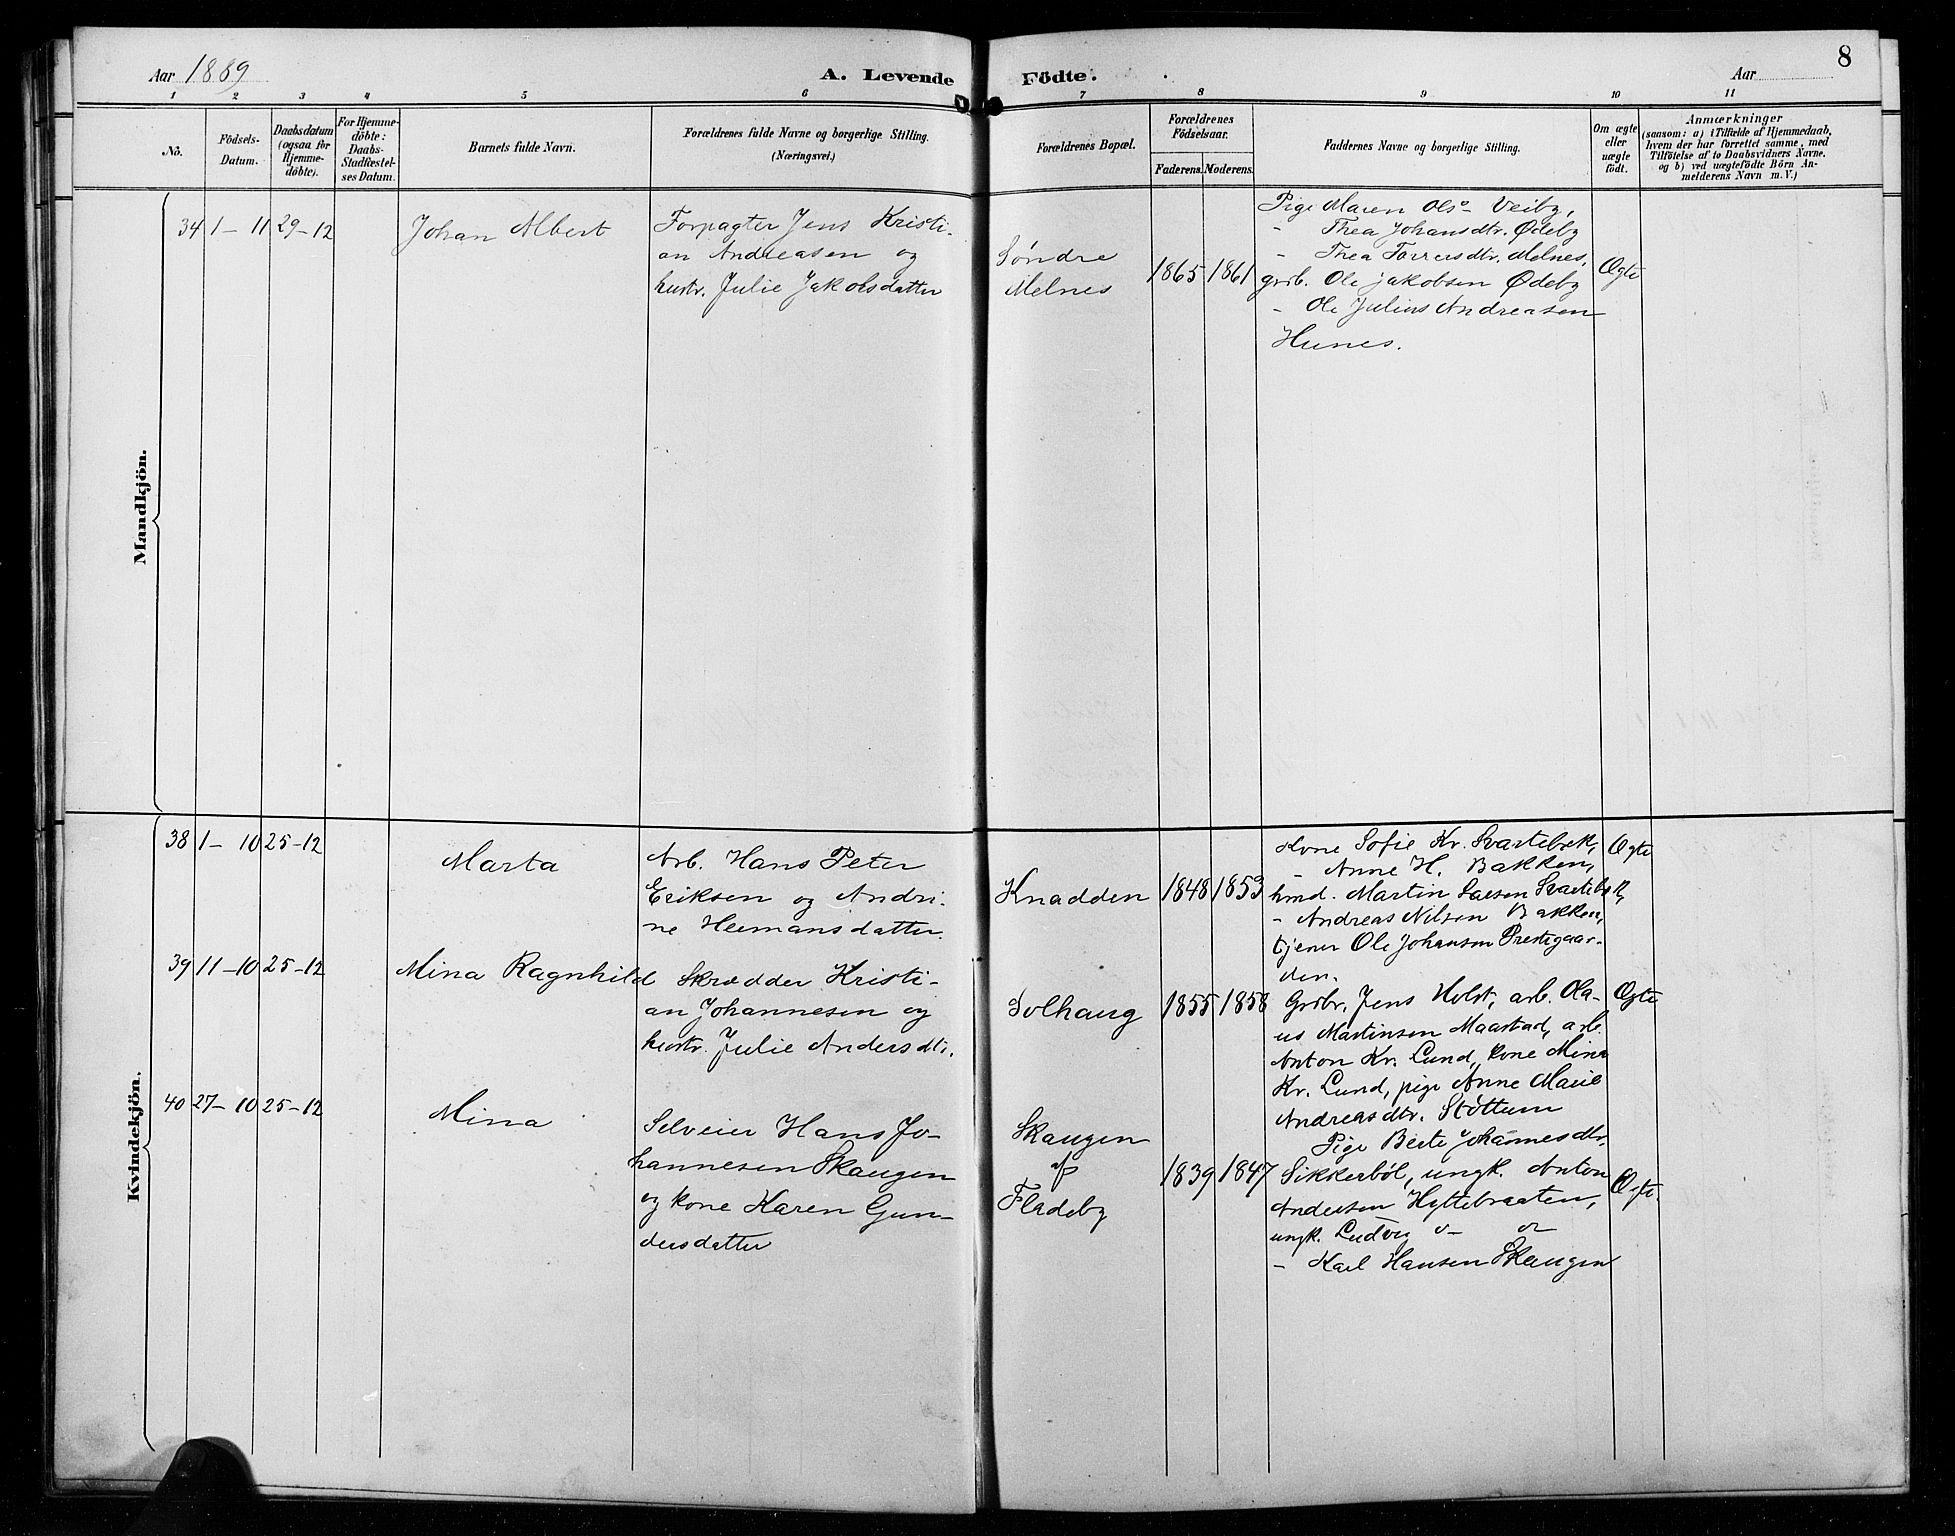 Aar 1889
A. Levende Födte.
Aar
8
1 2 3 4 5 6 7 8 9 10 11
No.
Födsels-
Datum.
Daabsdatum
(ogsaa for
Hjemme-
döbte).
For Hjemme-
döbte:
Daabs-
Stadfæstel-
ses Datum.
Barnets fulde Navn.
Forældrenes fulde Navne og borgerlige Stilling.
(Næringsvei.)
Forældrenes Bopæl.
Forældrenes
Födselsaar.
Faderens. Moderens.
Faddernes Navne og borgerlige Stilling.
Om ægte
eller
uægte
födt.
Anmærkninger
(saasom: a) i Tilfælde af Hjemmedaab,
hvem der har forrettet samme, med
Tilföielse af to Daabsvidners Navne,
og b) ved uægtefödte Börn An-
melderens Navn m. V.)
Mandkjön.
34 1-11 29-12
Johan Albert
Forpagter Jens Kristi-
an Andreasen og
hustr. Julie Jakobsdatter
Søndre
Melnes
1865 1861
Pige Maren Ols- Veiby,
- Thea Johansdtr. Ødeby
- Thea Torersdtr. Melnes,
grdb. Ole Jakobsen Ødeby
- Ole Julius Andreasen
Hunes.
Ægte
Kvindekjön.
38 1-10 25-12
Marta
Arb. Hans Peter
Eriksen og Andri-
ne Heimansdatter.
Knadden
1848 1853
Kone Sofie Kr. Svartebek,
- Anne H. Bakken,
hmd. Martin Larsen Svartebek,
- Andreas Nilsen Bakken,
tjener Ole Johansen Prestegaar-
den.
Ægte
39 11-10 25-12
Mina Ragnhild
Skrædder Kristi-
an Johannesen og
hustr. Julie Andersdtr.
Solhaug
1855 1858
Grdbr. Jens Holst, arb. Ola-
us Martinsen Maarstad, arb.
Anton Kr. Lund, kone Mina
Kr. Lund, pige Anne Marie
Andreasdtr. Støttum
Ægte
40 27-10 25-12
Mina
Selveier Hans Jo-
hannesen Skaugen
og kone Karen Gun-
dersdatter
Skaugen
af
Fladeby
1839 1847
Pige Berte Johannesdtr.
Sikkerbøl, ungk. Anton
Andersen Hyttebraaten,
ungk. Ludvig
- Karl Hansen Skaugen
Ægte